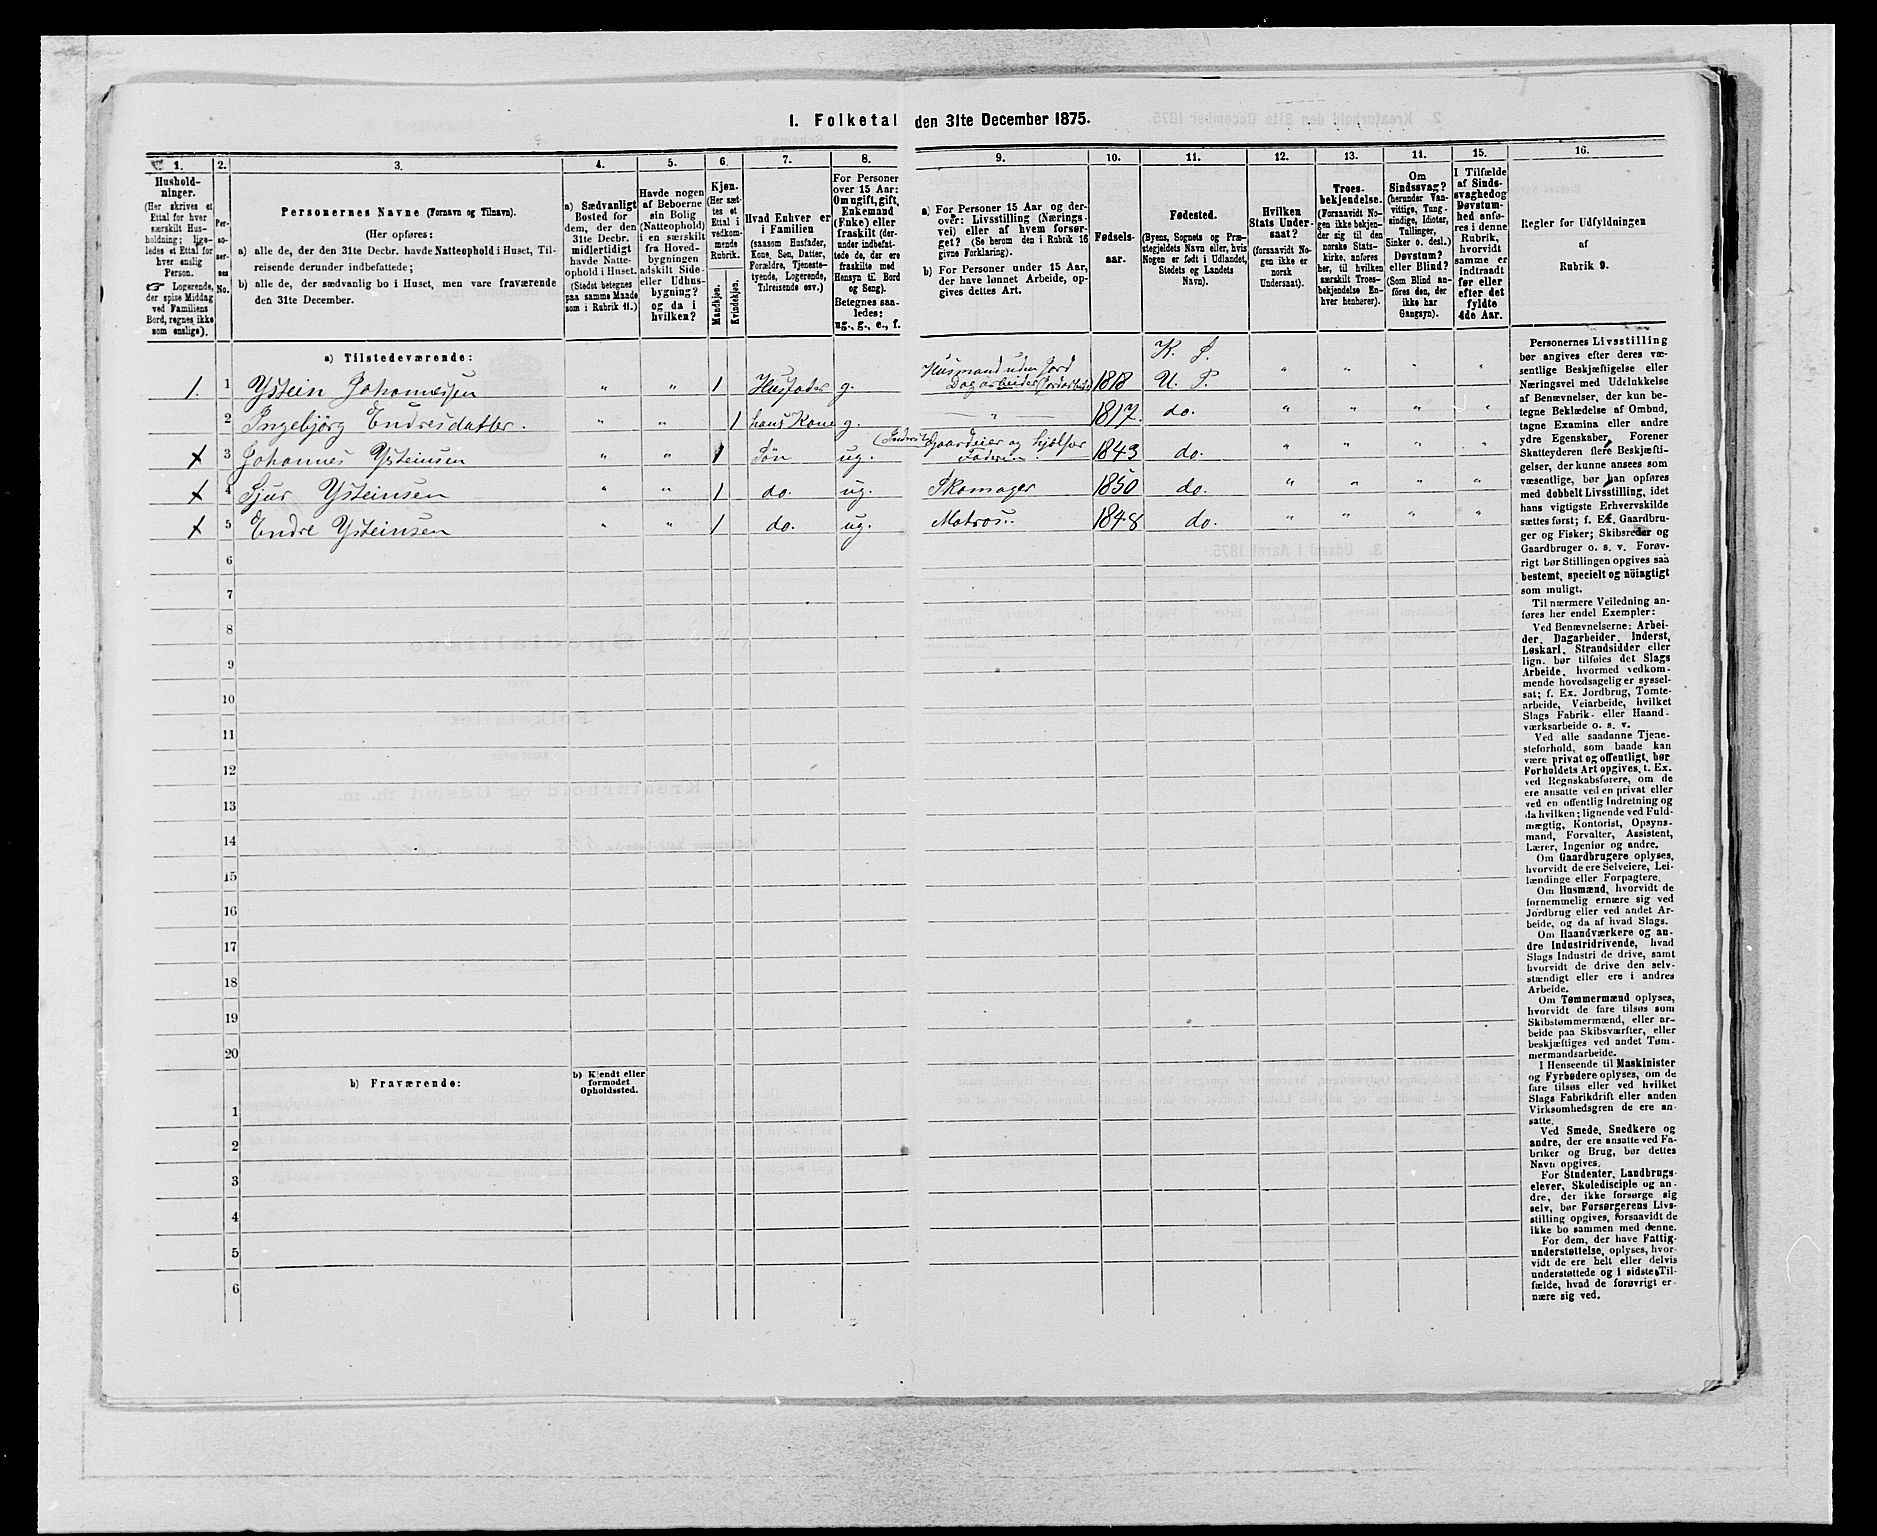 I. Folketal den 31te December 1875.
1. 2. 3. 4. 5. 6. 7. 8. 9. 10. 11. 12. 13. 14. 15. 16.
Hushold-
ninger.
(Her skrives et
Ettal for hver
særskilt Hus-
holdning; lige-
ledes et Ettal for
hver enslig
Person.
☞ Logerende,
der spise Middag
ved Familiens
Bord, regnes ikke
som enslige).
Per-
so-
ner-
nes
No.
Personernes Navne (Fornavn og Tilnavn).
(Her opføres:
a) alle de, der den 31te Decbr. havde Natteophold i Huset, Til-
reisende derunder indbefattede;
b) alle de, der sædvanlig bo i Huset, men vare fraværende
den 31te December.
a) Sædvanligt
Bosted for
dem, der den
31te Decbr.
midlertidigt
havde Natte-
ophold i Huset.
(Stedet betegnes
paa samme Maade
som i Rubrik 11.)
Havde nogen
af Beboerne
sin Bolig
(Natteophold)
i en særskilt
fra Hoved-
bygningen
adskilt Side-
eller Udhus-
bygning?
og da i
hvilken?
Kjøn.
(Her sæt-
tes et
Ettal i
vedkom-
mende
Rubrik.
Mandkjøn.
Kvindekjøn.
Hvad Enhver er
i Familien
(saasom Husfader,
Kone, Søn, Datter,
Forældre, Tjeneste-
tyende, Logerende,
Tilreisende osv.)
For Personer
over 15 Aar:
Om ugift, gift,
Enkemand
(Enke) eller
fraskilt (der-
under indbefat-
tede de, der ere
fraskilte med
Hensyn til Bord
og Seng).
Betegnes saa-
ledes:
ug., g., e., f.
a) For Personer 15 Aar og der-
over: Livsstilling (Nærings-
vei) eller af hvem forsør-
get? (Se herom den i Rubrik 16
givne Forklaring).
b) For Personer under 15 Aar,
der have lønnet Arbeide, op-
gives dettes Art.
Fødsels-
aar.
Fødested.
(Byens, Sognets og Præ-
stegjeldets Navn eller, hvis
Nogen er født i Udlandet,
Stedets og Landets
Navn).
Hvilken
Stats Under-
saat?
(forsaavidt No-
gen ikke er
norsk
Undersaat).
Troes-
bekjendelse.
(Forsaavidt No-
gen ikke bekjen-
der sig til den
norske Stats-
kirke, anføres
her, til hvilken
særskilt Troes-
bekjendelse En-
hver henhører).
Om
Sindssvag?
(herunder Van-
vittige, Tung-
sindige, Idioter,
Tullinger,
Sinker o. desl.)
Døvstum?
eller Blind?
(Som Blind an-
føres den, der
ikke har
Gangsyn).
I Tilfælde
af Sinds-
svaghed og
Døvstum-
hed anfø-
res i denne
Rubrik,
hvorvidt
samme er
indtraadt
før eller
efter det
fyldte
4de Aar.
Regler for Udfyldningen
af
Rubrik 9.
a) Tilstedeværende:
1. 1 Ystein Johannessen " " 1 Husfader g. Husmand uden Jord Dagarbeider (Jordarbeide) 1818 K. S. U. P. " " " "
2 Ingebjörg Endresdatter. " " 1 hans Kone g. " 1817. do. " " " "
x 3 Johannes Ysteinsen " " 1 Søn ug. Gaardeier og hjælper Faderen 1843 do. " " " "
x 4 Sjur Ysteinsen " " 1 do. ug. Skomager 1850 do. " " " "
x 5 Endre Ysteinsen " " 1 do. ug. Matros. 1848 do. " " " "
6
7
8
9
10
11
12
13
14
15
16
17
18
19
20
b) Fraværende:
b) Kjendt eller
formodet
Opholdssted.
1
2
3
4
5
6
Personernes Livsstilling
bør angives efter deres væ-
sentlige Beskjæftigelse eller
Næringsvei med Udelukkelse
af Benævnelser, der kun be-
tegne Beklædelse af Ombud,
tagne Examina eller andre
ydre Egenskaber. Forener
Skatteyderen flere Beskjæfti-
gelser, der kunne ansees som
væsentlige, bør han opføres
med dobbelt Livsstilling, idet
hans vigtigste Erhvervskilde
sættes først; f. Ex. Gaardbru-
ger og Fisker; Skibsreder og
Gaardbruger o. s. v. Forøv-
rigt bør Stillingen opgives saa
bestemt, specielt og nöiagtigt
som muligt.
Til nærmere Veiledning an-
føres her endel Exempler:
Ved Benævnelserne: Arbei-
der, Dagarbeider, Inderst,
Løskarl, Strandsidder eller
lign. bør tilføies det Slags
Arbeide, hvormed vedkom-
mende hovedsagelig er syssel-
sat; f. Ex. Jordbrug, Tomte-
arbeide, Veiarbeide, hvilket
Slags Fabrik- eller Haand-
værksarbeide o. s. v.
Ved alle saadanne Tjene-
steforhold, som baade kan
være privat og offentligt, bør
Forholdets Art opgives, t. Ex.
ved Regnskabsførere, om de
ere ansatte ved en privat eller
ved en offentlig Indretning og
da hvilken; lignende ved Fuld-
mægtig, Kontorist, Opsyns-
mand, Forvalter, Assistent,
Lærer, Ingeniør og andre.
Om Gaardbrugere oplyses,
hvorvidt de ere Selveiere, Lei-
lændinge eller Forpagtere.
Om Husmænd, hvorvidt de
fornemmelig ernære sig ved
Jordbrug eller ved andet Ar-
beide, og da af hvad Slags.
Om Haandværkere og an-
dre Industridrivende, hvad
Slags Industri de drive, samt
hvorvidt de drive den selv-
stændigt eller ere i andres
Arbeide.
Om Tømmermænd oplyses,
hvorvidt de fare tilsøs som
Skibstømmermænd, eller ar-
beide paa Skibsværfter, eller
beskjæftiges ved andet Tøm-
mermandsarbeide.
I Henseende til Maskinister
og Fyrbødere oplyses, om de
fare tilsøs eller ved hvilket
Slags Fabrikdrift eller anden
Virksomhedsgren de ere an-
satte.
Ved Smede, Snedkere og
andre, der ere ansatte ved Fa-
briker og Brug, bør dettes
Navn opgives.
For Studenter, Landbrugs-
elever, Skoledisciple og an-
dre, der ikke forsørge sig
selv, bør Forsørgerens Livs-
stilling opgives, forsaavidt de
ikke bo sammen med denne.
For dem, der have Fattig-
understøttelse, oplyses, hvor-
vidt de ere helt eller delvis
understøttede og i sidste Til-
fælde, hvad de forøvrigt er-
nære sig ved.